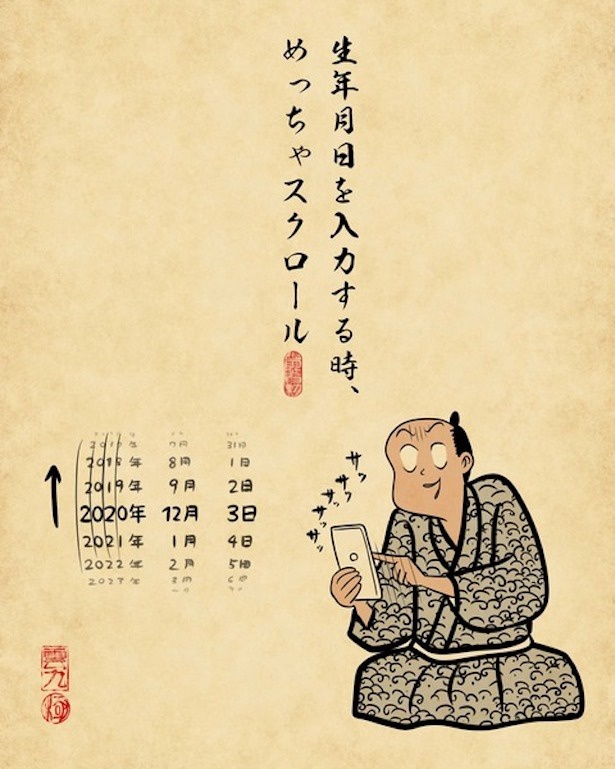 生年月日を入力する時、
めっちゃスクロール
2019年 7月 31日
2018年 8月 1日
2019年 9月 2日
2020年 12月 3日
2021年 1月 4日
2022年 2月 5日
2023年 3月 6日
サッ
サッ
サッ
サッ
サッ